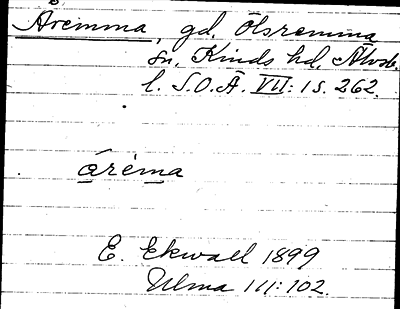 Aremma, gd. Ölsremma
sn, Kinds hd, Älvsb.
l. S.O.Ä. VII:1 s. 262.
àrèma
E. Ekwall 1899
Ulma 111:102.